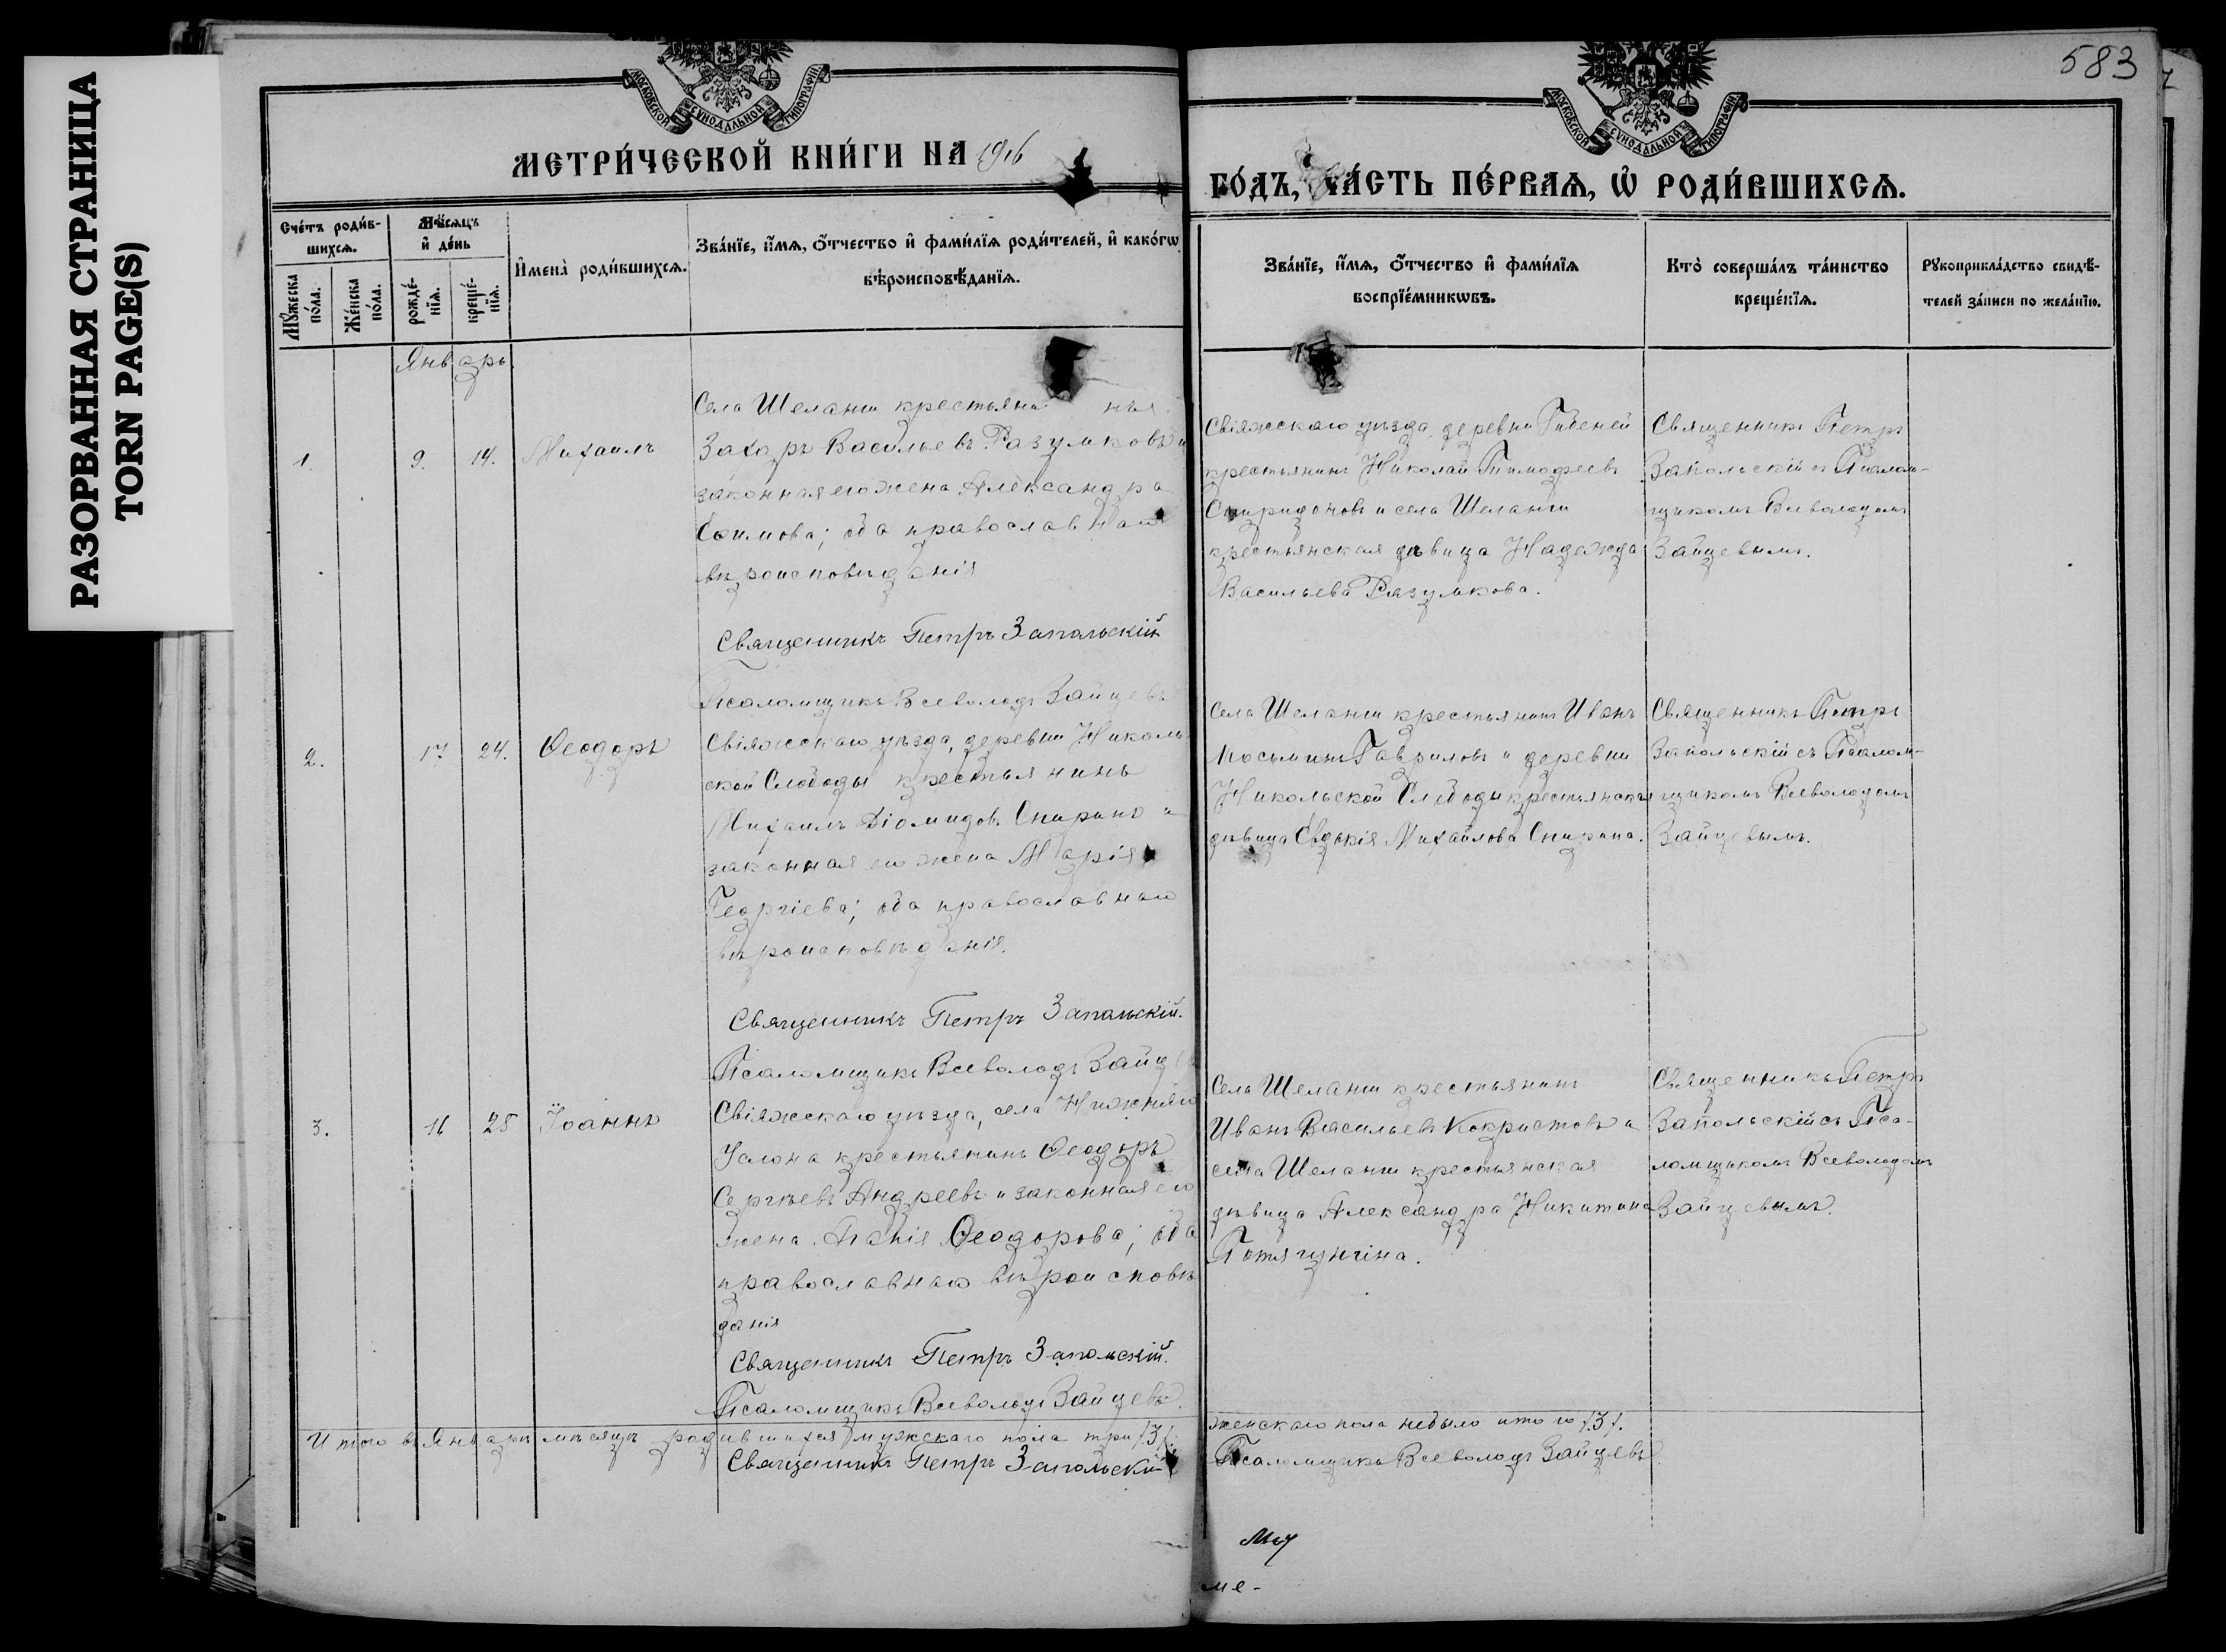 РАЗОРВАННАЯ СТРАНИЦА
TORN PAGE(S)
583
МОСКОВСКОЙ СѴНОДАЛЬНОЙ ТИПОГРАФІИ.
МОСКОВСКОЙ СѴНОДАЛЬНОЙ ТИПОГРАФІИ.
МЕТРИ́ЧЕСКОЙ КНИ́ГИ НА 1916
ГО́ДЪ, ЧА́СТЬ ПЕ́РВАЯ, Ѡ РОДИ́ВШИХСЯ.
Сче́тъ роди́в-
шихся.
Мѣ́сяцъ
и де́нь
Му́жеска
по́ла.
Же́нска
по́ла.
рожде́-
нїя.
креще́-
нїя.
Имена̀ роди́вшихся.
Зва́нїе, и́мя, о́тчество и фами́лїя роди́телей, и како́гѡ
вѣроисповѣ́данїя.
Зва́нїе, и́мя, о́тчество и фами́лїя
воспрїе́мникѡвъ.
Кто̀ соверша́лъ та́инство
креще́нїя.
Рукоприкла́дство свидѣ́-
телей за́писи по жела́нїю.
Январь
1. 9. 14. Михаилъ
Села Шеланги крестьяни нъ
Захаръ Васильевъ Разумковъ и
законная его жена Александра
Ефимова; оба православнаго
вѣроисповѣданія
Священникъ Петръ Запольскій
Псаломщикъ Всеволодъ Зайцевъ
Свіяжскаго уѣзда, деревни
крестьянинъ Николай Тимофеевъ
Спиридоновъ и села Шеланги
крестьянская дѣвица Надежда
Васильева Разумкова.
Священникъ Петръ
Запольскій съ Псалом-
щикомъ Всеволодомъ
Зайцевымъ.
2. 17. 24. Ѳеодоръ
Свіяжскаго уѣзда, деревни Николь
ской Слободы крестьянинъ
Михаилъ Діомидовъ Спиринъ и
законная его жена Марія
Георгіева; оба православнаго
вѣроисповѣданія.
Священникъ Петръ Запольскій.
Псаломщикъ Всеволодъ Зайцев
Села Шеланги крестьянинъ Иванъ
Косьминъ Гавриловъ и деревни
Никольской Слободы крестьянская
дѣвица Евдокія Михайлова Спирина.
Священникъ Петръ
Запольскій съ Псалом-
щикомъ Всеволодомъ
Зайцевымъ.
3. 16 25 Іоаннъ
Свіяжскаго уѣзда, села Нижняго
Услона крестьянинъ Ѳеодоръ
Сергѣевъ Андреевъ и законная его
жена Ѳеодорова; оба
православнаго вѣроисповѣ
данія
Священникъ Петръ Запольскій.
Псаломщикъ Всеволодъ Зайцевъ.
Села Шеланги крестьянинъ
Иванъ Васильевъ и
села Шеланги крестьянская
дѣвица Александра Никитина
Потягунчина.
Священникъ Петръ
Запольскій съ Пса-
ломщикомъ Всеволодомъ
Зайцевымъ.
Итого въ Январѣ мѣсяцѣ родившихся мужскаго пола три /3/.
женскаго пола небыло итого /3/.
Священникъ Петръ Запольскій
Псаломщикъ Всеволодъ Зайцевъ.
ме-